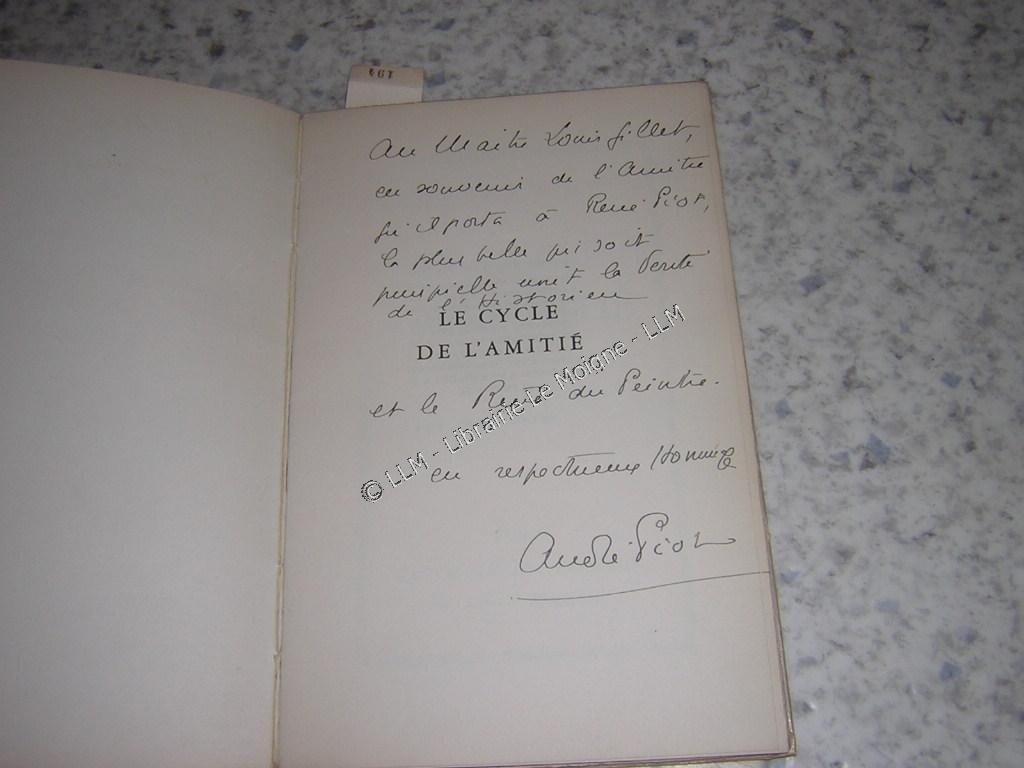 191
Au Maitre Louis Gillet,
en souvenir de l'Amitié
qu'il porta à René Piot,
la plus belle qui soit
puisqu'elle unit la Vérité
de l'Historien
LE CYCLE
DE L'AMITIÉ
et le du Peintre.
en respectueux Hommage
André Piot
© LLM - Librairie Le Moigne - LLM